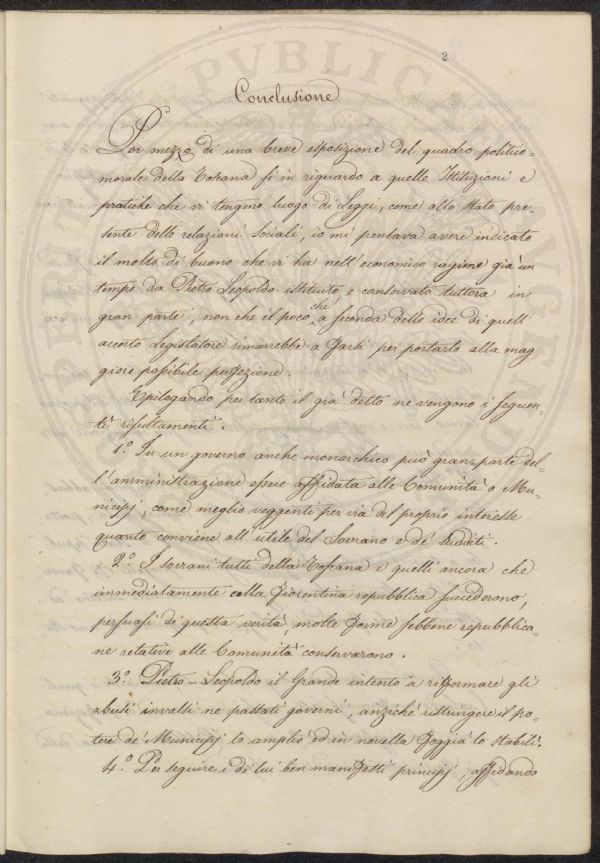 2
Conclusione
Per mezzo di una breve esposizione del quadro politico=
morale della Toscana si in riguardo a quelle Istituzioni e
pratiche che vi tengono luogo di Leggi, come allo stato pre-
sente delle relazioni sociali, io mi pensava avere indicato
il molto di buono che vi ha nell'economico regime già un
tempo da Pietro Leopoldo istituito e conservato tuttora in
gran parte, non che il poco che a seconda delle idee di quell'
accorto Legislatore rimarrebbe a farsi per portarlo alla mag-
giore possibile perfezione.
Epilogando per tanto il già detto ne vengono i seguen-
ti risultamenti.
1.º In un governo anche monarchico può gran parte del-
l'amministrazione essere affidata alle Comunità o Mu-
nicipj, come meglio veggenti per via del proprio interesse
quanto conviene all'utile del Sovrano e de' sudditi.
2.º I sovrani tutti della Toscana e quelli ancora che
immediatamente alla Fiorentina repubblica succederono,
persuasi di questa verità, molte forme sebbene repubblica-
ne relative alle Comunità conservarono.
3.º Pietro-Leopoldo il Grande intento a riformare gli
abusi invalsi ne passati governi, anzichè ristringere il po-
tere de' Municipj lo ampliò ed in novella foggia lo stabilì.
4.º Per seguire i di lui ben manifesti principj, affidando